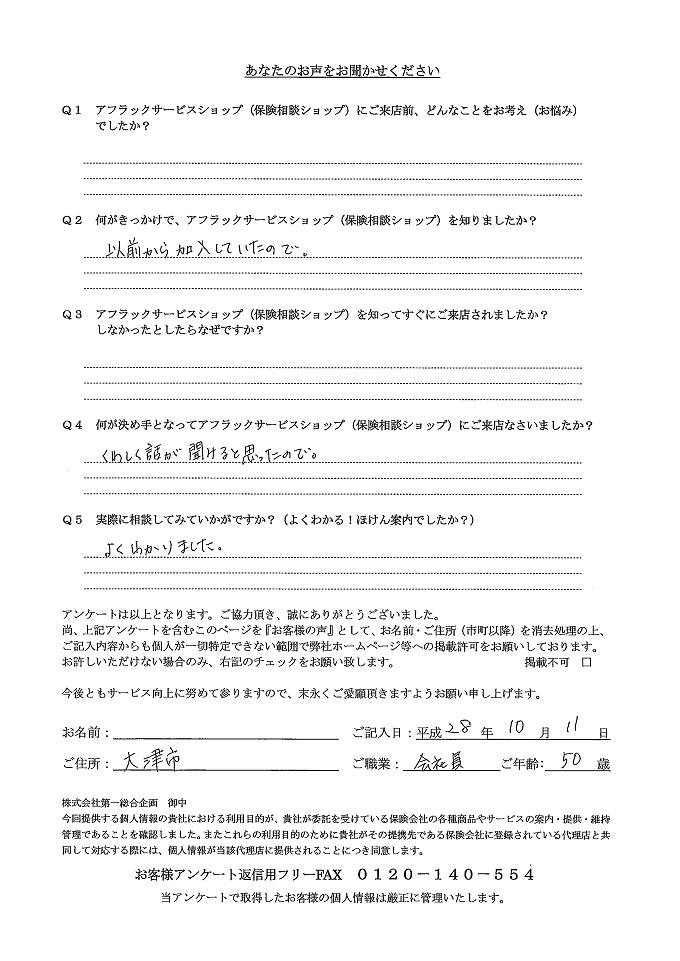 あなたのお声をお聞かせください
Q1 アフラックサービスショップ（保険相談ショップ）にご来店前、どんなことをお考え（お悩み）
でしたか？
Q2 何がきっかけで、アフラックサービスショップ（保険相談ショップ）を知りましたか？
以前から加入していたので。
Q3 アフラックサービスショップ（保険相談ショップ）を知ってすぐにご来店されましたか？
しなかったとしたらなぜですか？
Q4 何が決め手となってアフラックサービスショップ（保険相談ショップ）にご来店なさいましたか？
くわしく話が聞けると思ったので。
Q5 実際に相談してみていかがですか？（よくわかる！ほけん案内でしたか？）
よくわかりました。
アンケートは以上となります。ご協力頂き、誠にありがとうございました。
尚、上記アンケートを含むこのページを『お客様の声』として、お名前・ご住所（市町以降）を消去処理の上、
ご記入内容からも個人が一切特定できない範囲で弊社ホームページ等への掲載許可をお願いしております。
お許しいただけない場合のみ、右記のチェックをお願い致します。 掲載不可 □
今後ともサービス向上に努めて参りますので、末永くご愛顧頂きますようお願い申し上げます。
お名前： ご記入日：平成 28 年 10 月 11 日
ご住所： 大津市 ご職業： 会社員 ご年齢： 50 歳
株式会社第一総合企画 御中
今回提供する個人情報の貴社における利用目的が、貴社が委託を受けている保険会社の各種商品やサービスの案内・提供・維持
管理であることを確認しました。またこれらの利用目的のために貴社がその提携先である保険会社に登録されている代理店と共
同して対応する際には、個人情報が当該代理店に提供されることにつき同意します。
お客様アンケート返信用フリーFAX 0120－140－554
当アンケートで取得したお客様の個人情報は厳正に管理いたします。